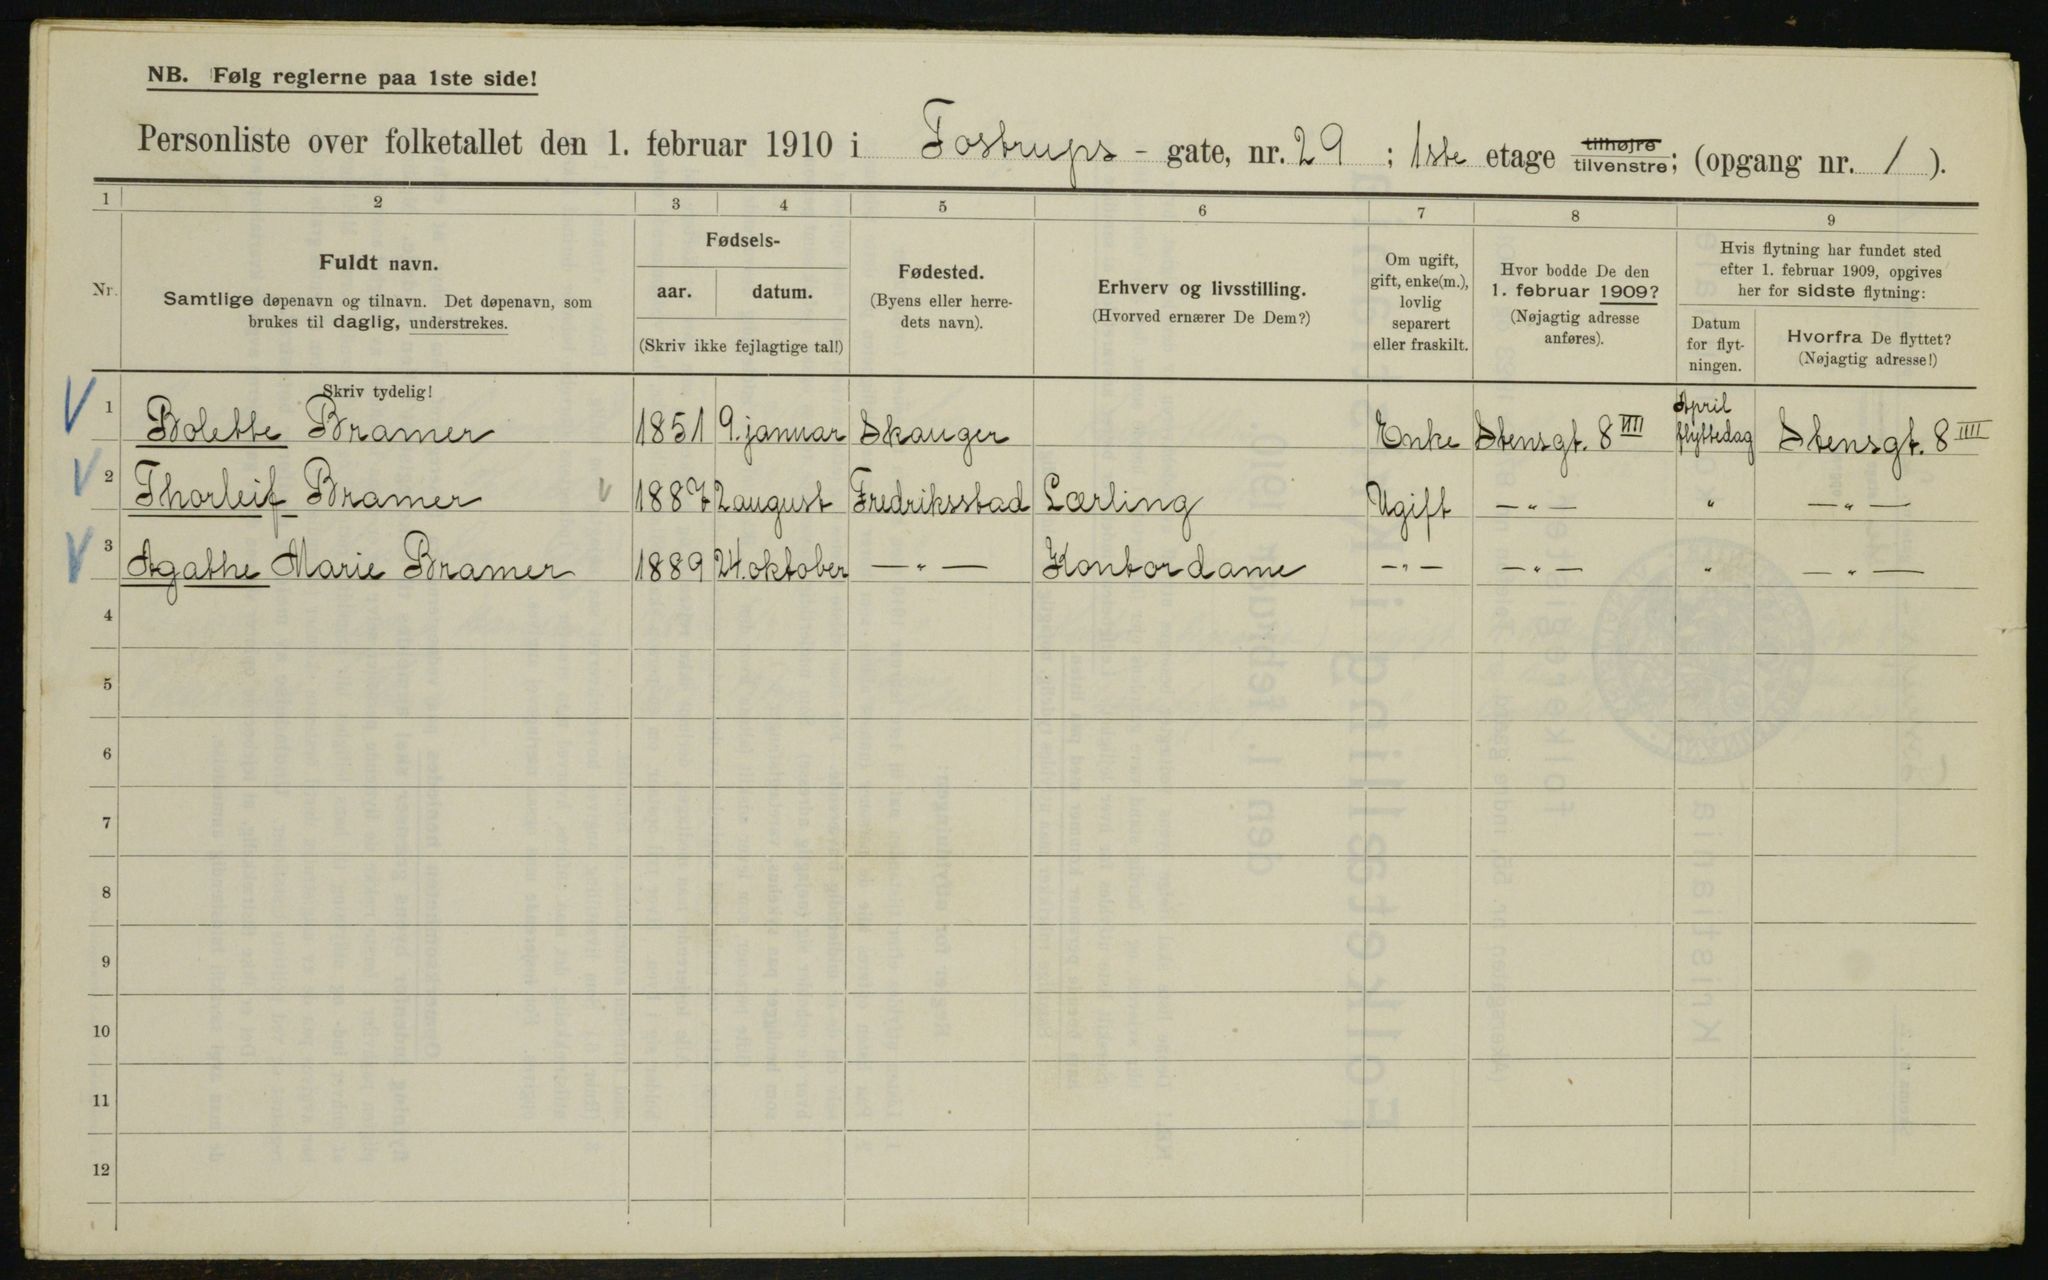 NB. Følg reglerne paa 1ste side!
Personliste over folketallet den 1. februar 1910 i Fostrups - gate, nr. 29 ; 1ste etage tilhøjre tilvenstre; (opgang nr. 1 ).
1 2 3 4 5 6 7 8 9
Nr.
Fuldt navn.
Samtlige døpenavn og tilnavn. Det døpenavn, som
brukes til daglig, understrekes.
Skriv tydelig!
Fødsels-
aar. datum.
(Skriv ikke fejlagtige tal!)
Fødested.
(Byens eller herre-
dets navn).
Erhverv og livsstilling.
(Hvorved ernærer De Dem?)
Om ugift,
gift, enke(m.),
lovlig
separert
eller fraskilt.
Hvor bodde De den
1. februar 1909?
(Nøjagtig adresse
anføres).
Hvis flytning har fundet sted
efter 1. februar 1909, opgives
her for sidste flytning:
Datum
for flyt-
ningen.
Hvorfra De flyttet?
(Nøjagtig adresse!)
1 Bolette Bramer 1851 9. januar Skauger Enke Stensgt. 8 IIII April flyttedag Stensgt. 8 IIII
2 Thorleif Bramer 1887 2 august Fredriksstad Lærling Ugift — " — " — " —
3 Agathe Marie Bramer 1889 24. oktober — " — Kontordame — " — — " — " — " —
4
5
6
7
8
9
10
11
12